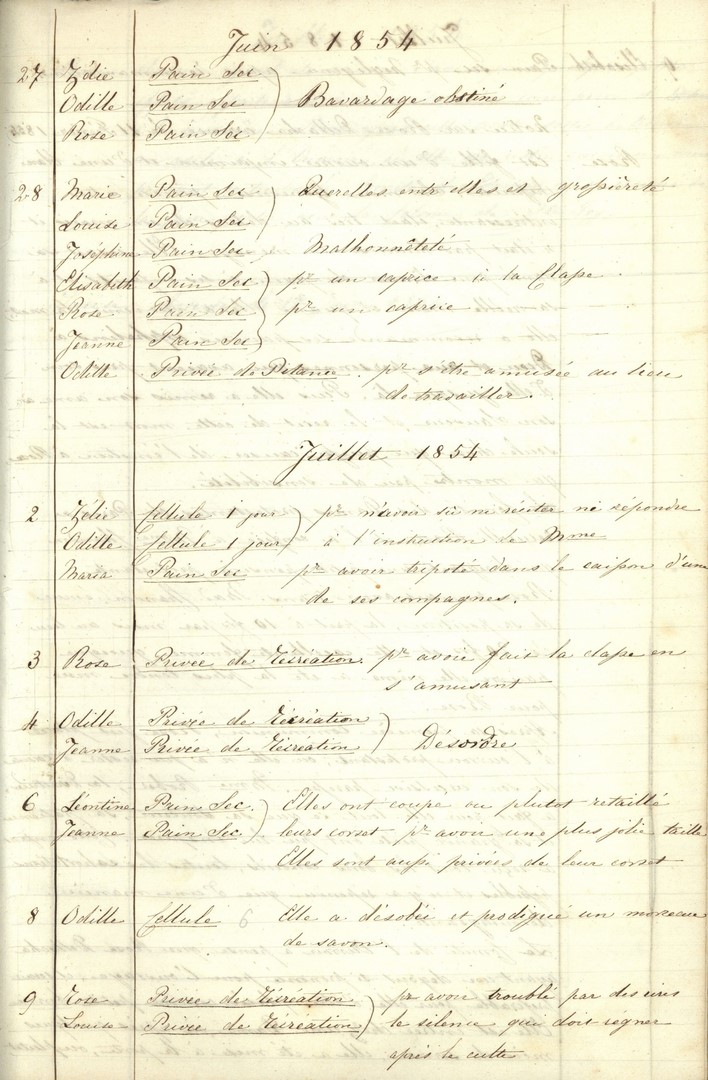 Juin 1854
27 Zélie Pain Sec
Odille Pain Sec Bavardage obstiné
Rose Pain Sec
28 Marie Pain Sec Querelles entr'elles et grossièreté
Louise Pain Sec
Joséphine Pain Sec Malhonnêteté
Elisabeth Pain Sec pr un caprice à la Classe.
Rose Pain Sec pr un caprice
Jeanne Pain Sec
Odille Privée de Pitance. pr s'être amusée au lieu
de travailler.
Juillet 1854
2 Zélie Cellule 1 jour pr n'avoir su ni réciter ni répondre
Odille Cellule 1 jour à l'instruction de Mme
Maria Pain Sec pr avoir tripoté dans le caisson d'une
de ses compagnes.
3 Rose Privée de Récréation. pr avoir fait la classe en
s'amusant
4 Odille Privée de Récréation
Jeanne Privée de Récréation Désordre
6 Léontine Pain Sec. Elles ont coupé ou plutot retaillé
Jeanne Pain Sec leurs corset pr avoir une plus jolie taille
Elles sont aussi privées de leur corset
8 Odille Cellule Elle a désobéi et prodigué un morceau
de savon.
9 Rose Privée de Récréation pr avoir troublé par des rires
Louise Privée de Récréation le silence qui doit régner
après le culte